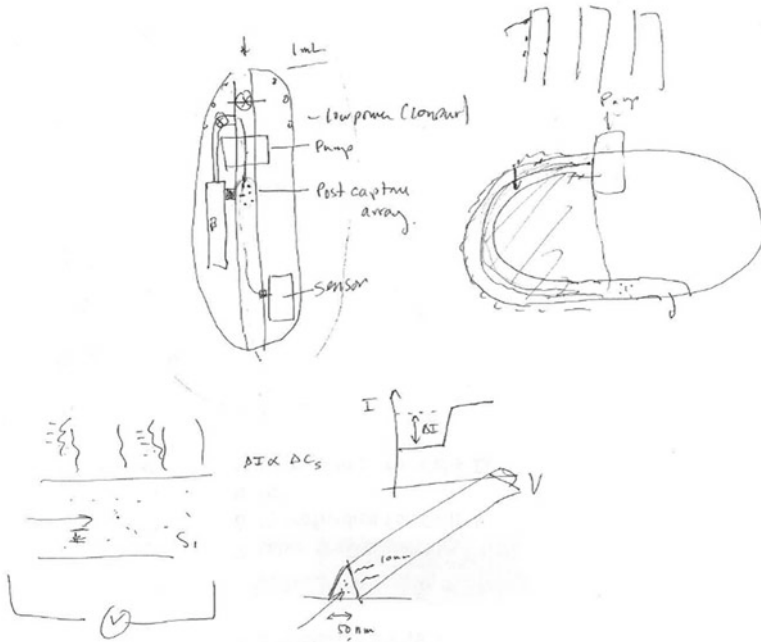 1 mL
- Low power
Pump
Post capture
array.
Sensor
Pump
I
ΔI
V
ΔI ∝ ΔCs
S1
V
10nm
50 nm